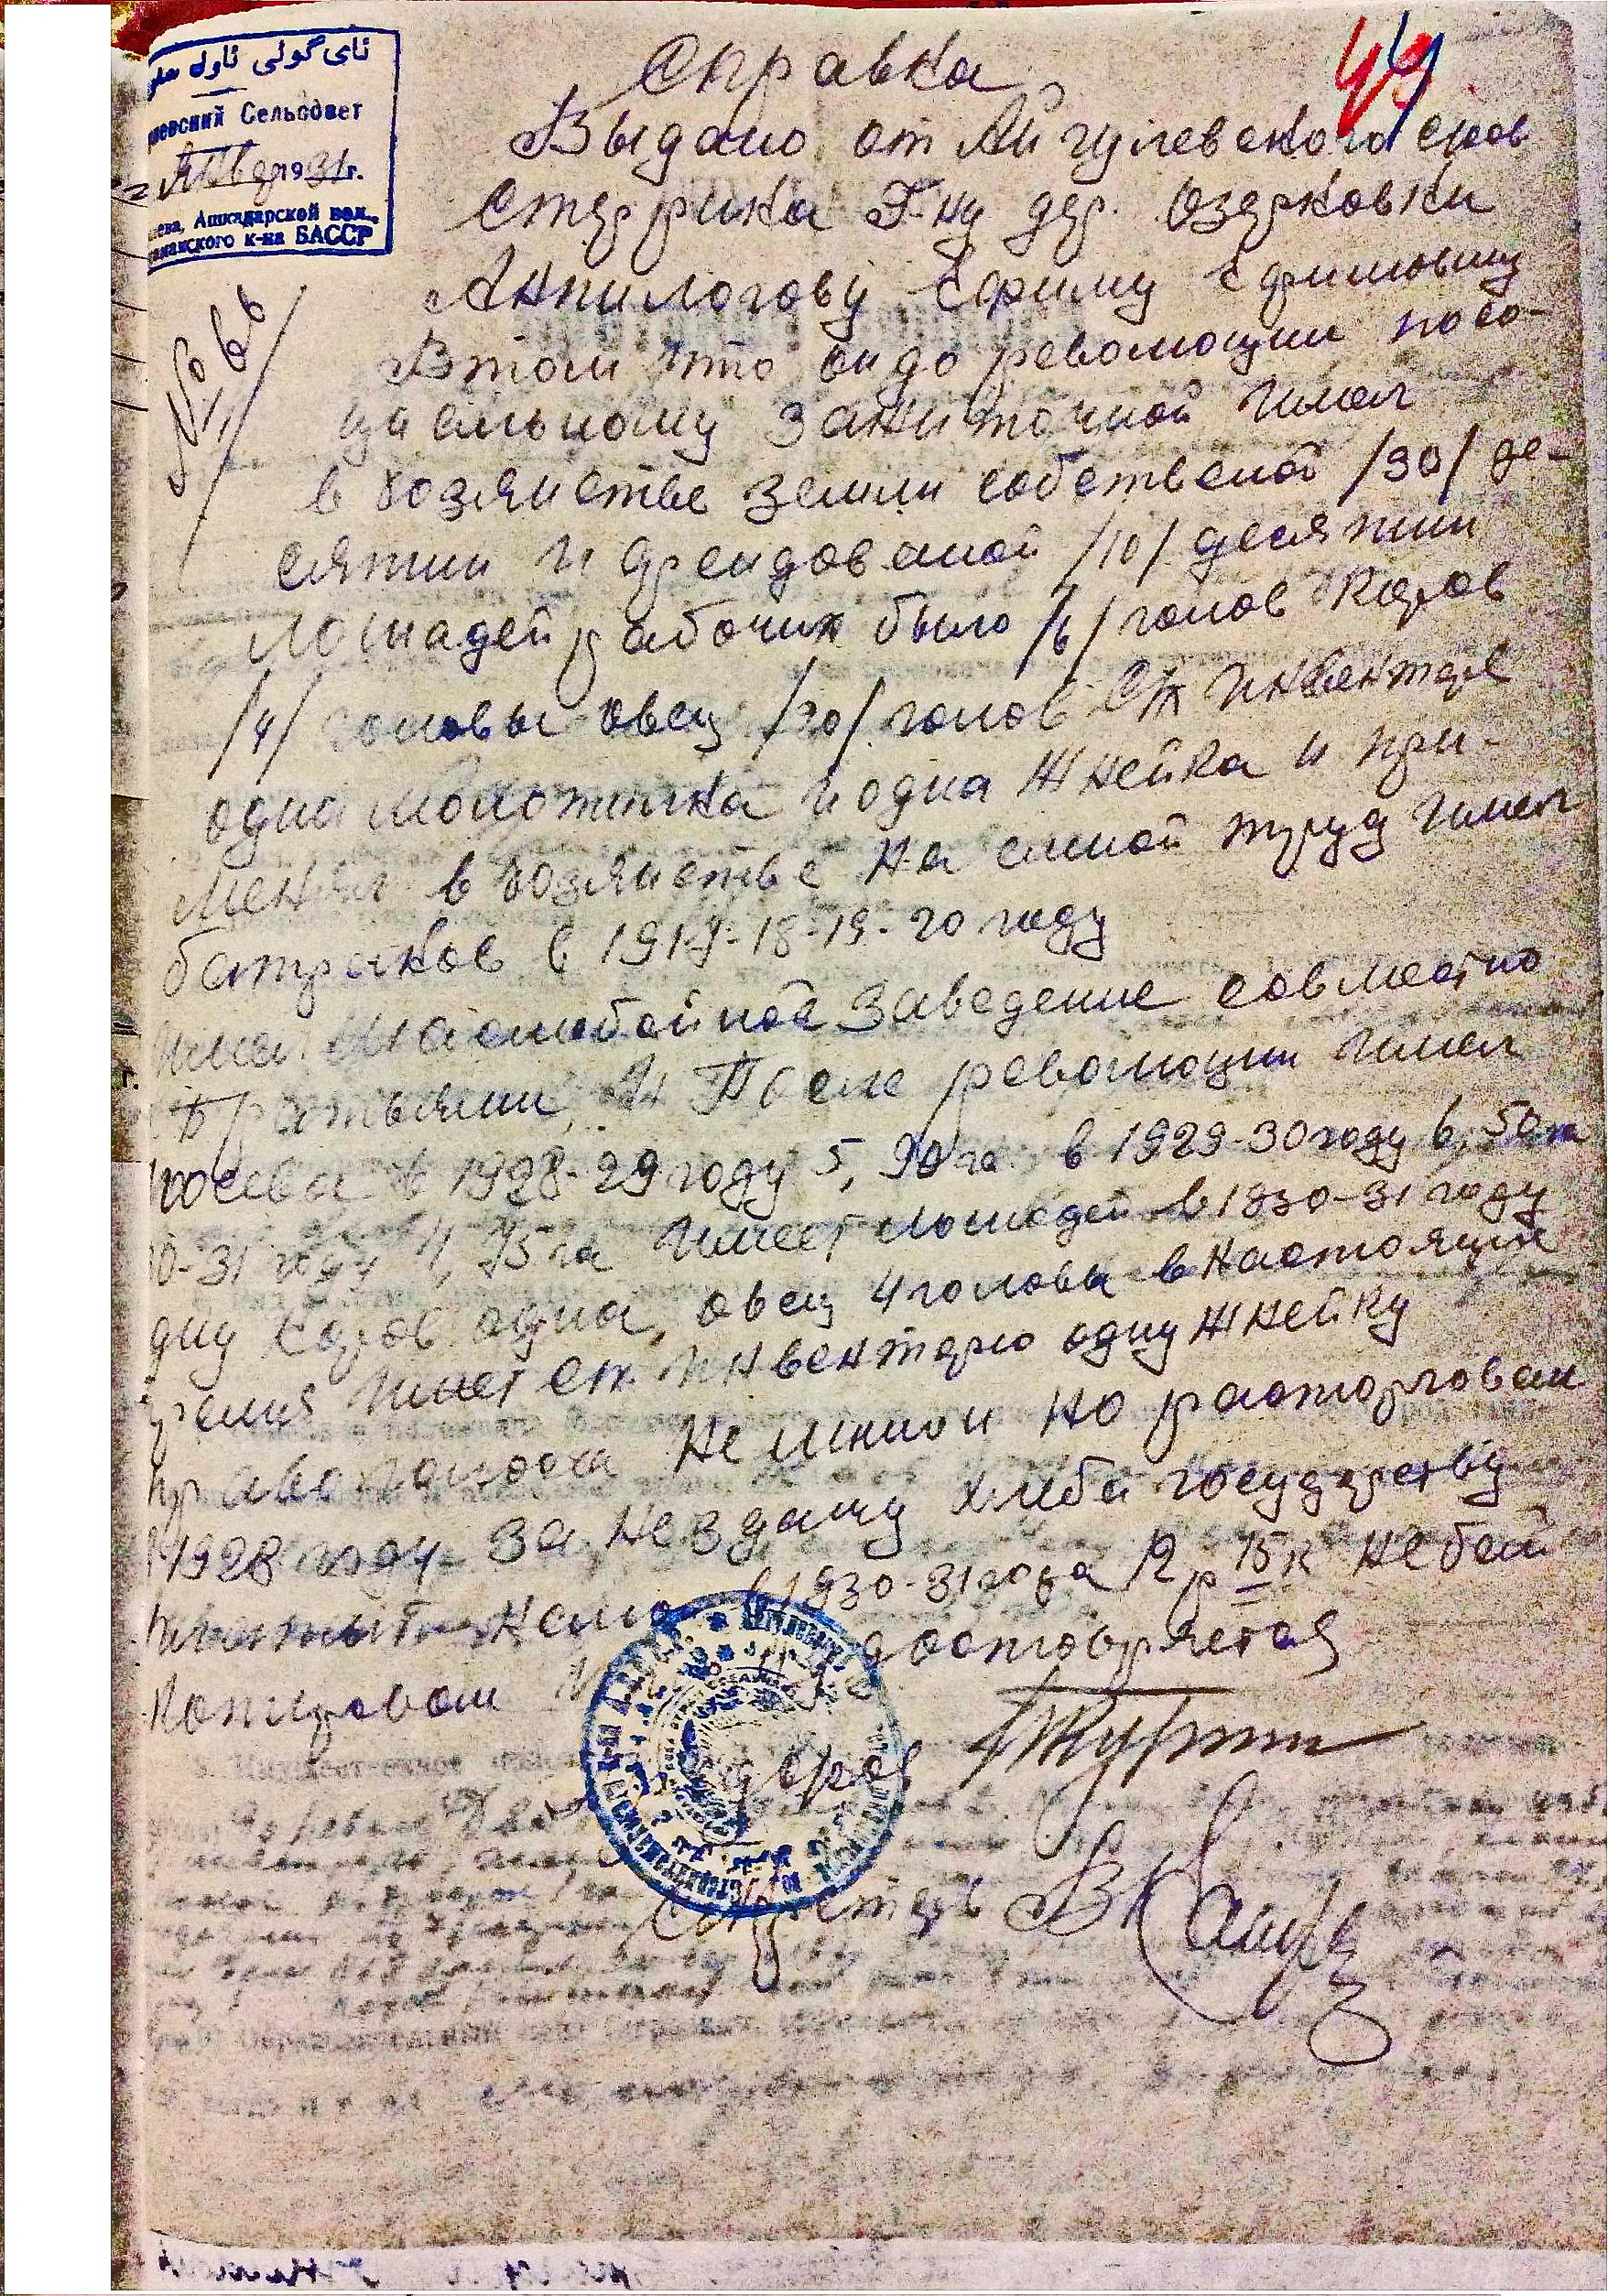 ئاي گولی ئاول
евский Сельсовет
Янвяр 1931 г.
ева, Ашкадарской вол.,
аманакского к-на БАССР
№ 66
49
Справка
Выдано от Айгулевского снов
Стеррика Г-ну дер. Озерковки
Анпилогову Ефиму Ефимовичу
В том что он до революции по со-
циальному зажиточной имел
в хозяйстве земли собственой /30/ де-
сятин и арендованой /10/ десятин
лошадей рабочих было /6/ голов Каров
/4/ головы овец /30/ голов с/х инвентаря
одна молотилка и одна жнейка и при-
менял в хозяйстве на емной труд имел
батраков в 1917-18-19-20 году
имел маслобойное заведение совместно
Братьями, и После революции имел
посева в 1928-29 году 5, 90 га в 1929-30 году 6, 50 га
30-31 году 4, 75 га имеет лошадей в 1930-31 году
дну Каров одна, овец 4 головы в настоящие
время имеет с/х инвентарю одну жнейку
право голоса не лишон но расторгован
в 1928 году за нездачу хлеба государству
1930-31 года 12 р 15 к не был
достоверяется
Секретарь